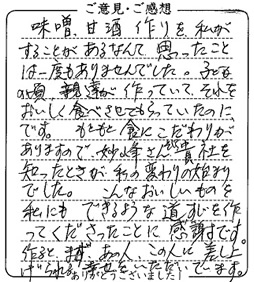 ご意見・ご感想
味噌、甘酒 作りを 私が
することがあるなんて 思ったこと
は一度もありませんでした。子ども
の頃、親達が 作っていて、それを
おいしく食べさせてもらっていたのに、
です。もともと 食にこだわりが
ありますので、妙峰さんが 貴社を
知ったときが 私の変わりの始まり
でした。 こんなおいしいものを
私にも できるような 道すじを作
ってくださったことに 感謝です。
作ると、まず あの人、この人に差し上
げられる 幸せをいただいています。
ありがとうございました